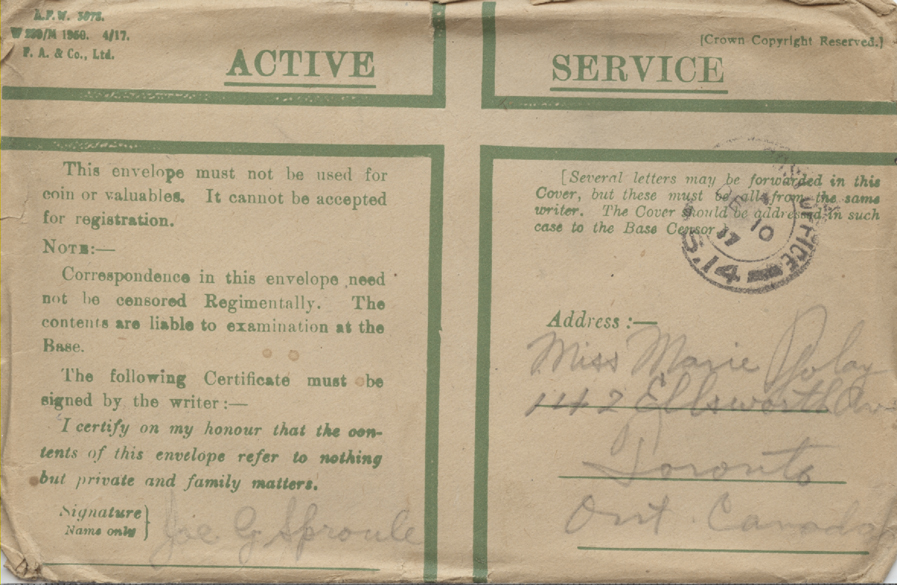 A.F.W. 3078.
4/17.
F. A. & Co., Ltd.
[Crown Copyright Reserved.]
ACTIVE
SERVICE
This envelope must not be used for
coin or valuables. It cannot be accepted
for registration.
NOTE:—
Correspondence in this envelope need
not be censored Regimentally. The
contents are liable to examination at the
Base.
The following Certificate must be
signed by the writer:—
I certify on my honour that the con-
tents of this envelope refer to nothing
but private and family matters.
Signature
Name only
Joe G Sproule
[Several letters may be forwarded in this
Cover, but these must be all from the same
writer. The Cover should be addressed in such
case to the Base Censor
10
17
S.14
Address:—
Miss Marie
142 Ellsworth Ave
Toronto
Ont. Canada